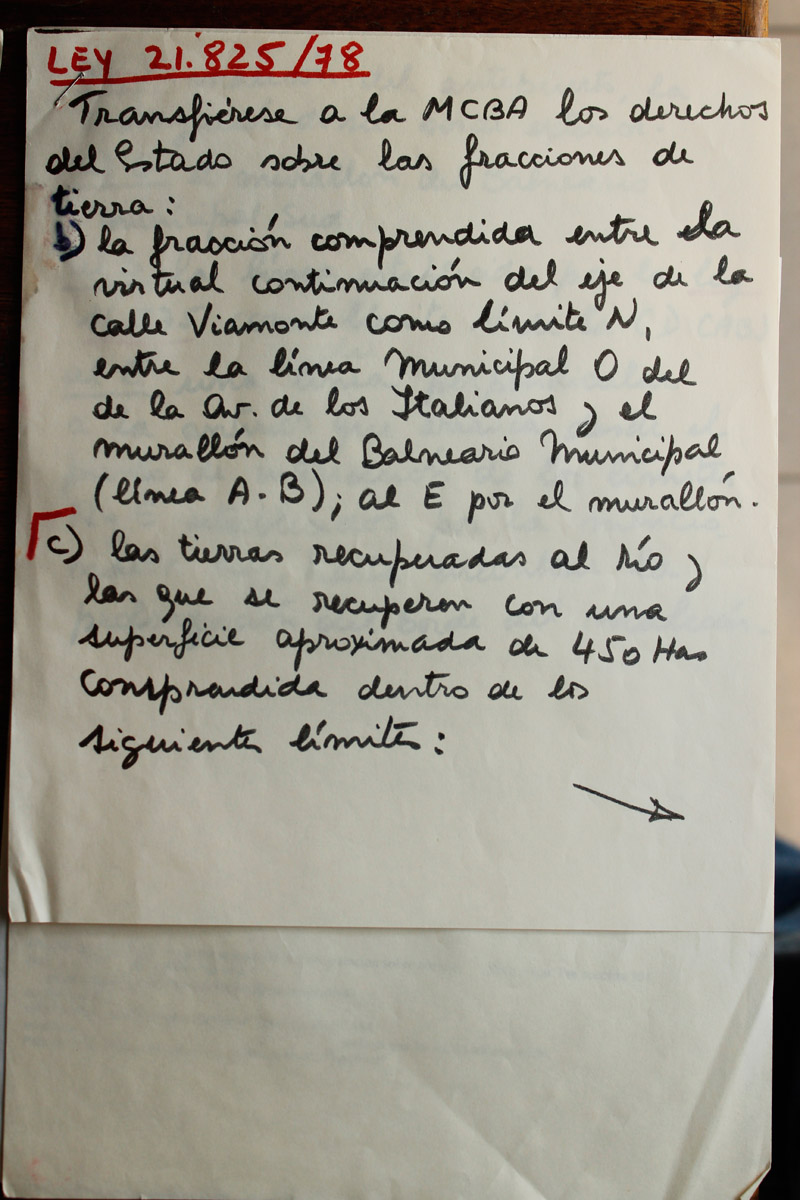 LEY 21.825/78
Transfiérese a la MCBA los derechos
del Estado sobre las fracciones de
tierra:
b) la fracción comprendida entre la
virtual continuación del eje de la
calle Viamonte como límite N,
entre la línea Municipal O del
de la Av. de los Italianos y el
murallón del Balneario Municipal
(línea A-B); al E por el murallón.
c) las tierras recuperadas al río y
las que se recuperen con una
superficie aproximada de 450 Has
comprendida dentro de los
siguientes límites: